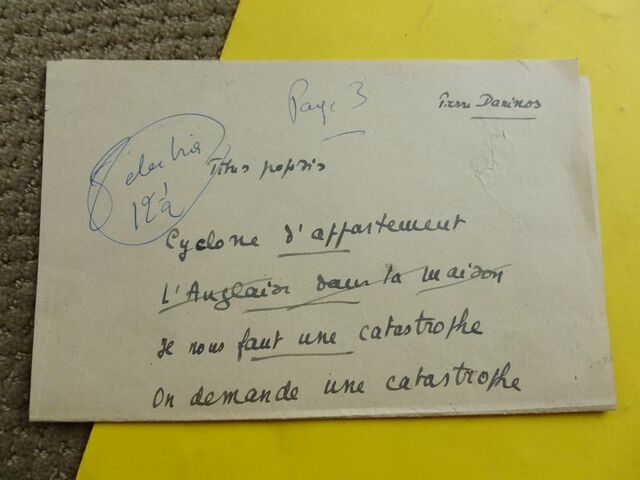 Page 3
Pierre Daninos
12 1/2
Titres proposés
Cyclone d'appartement
L'Anglais dans la maison
Je nous faut une catastrophe
On demande une catastrophe